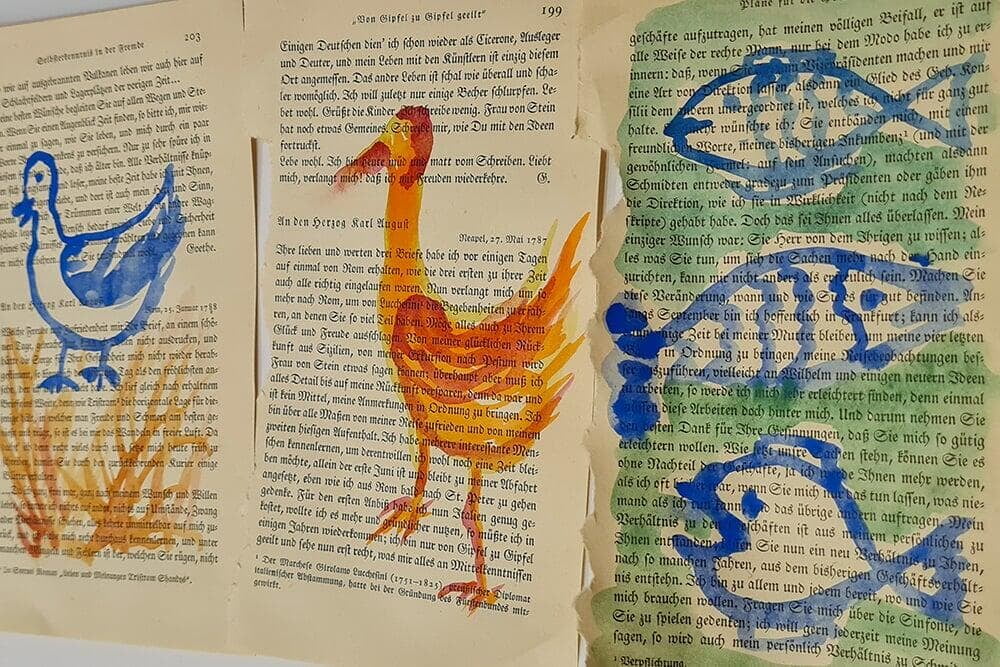 Selbsterkenntnis in der Fremde 203
wie auf ausgebrannten Vulkanen leben wir auch hier auf
Schlachtfeldern und Lagerplätzen der vorigen Zeit...
eine besten Wünsche begleiten Sie auf allen Wegen und Ste-
Wenn Sie einen Augenblick Zeit finden, so bitte ich, mir wie-
zu sagen, wie Sie leben, und mich durch ein paar
zu versichern. Nur zu sehr spüre ich in
daß ich älter bin. Alle Verhältnisse knüp-
meine beste Zeit habe ich mit Ihnen,
und dort ist auch mein Sinn,
Trümmern einer Welt
Der Mensch bedarf
Goethe.
An den Herzog Karl August
25. Januar 1788
Brief, an einem schö-
nicht ausdrucken, und
Gemüt mich nicht wieder
als den fröhlichsten an-
gleich nach erhaltnem
Tristram¹ die horizontale Lage für die-
man Freude und Schmerz am besten ge-
so ist es bei mir das Wandeln in freier Luft. Da
früh zu
Kurier einige
ganz nach meinem Wunsch und Willen
auf Umstände, Zwang
alles lehrte unmittelbar auf mich zu-
mich durchaus kennenlernen, und unter
und Felsen ist der, welchen Sie rügen, nicht
¹ In Sternes Roman „Leben und Meinungen Tristram Shandys".
„Von Gipfel zu Gipfel geeilt" 199
Einigen Deutschen dien' ich schon wieder als Cicerone, Ausleger
und Deuter, und mein Leben mit den Künstlern ist einzig diesem
Ort angemessen. Das andre Leben ist schal wie überall und scha-
ler womöglich. Ich will zuletzt nur einige Becher schlurfen. Le-
bet wohl. Grüßt die Kinder, ich schreibe wenig. Frau von Stein
hat noch etwas Gemeines. Schreibe mir, wie Du mit den Ideen
fortruckst.
Lebe wohl. Ich bin heute müd und matt vom Schreiben. Liebt
mich, verlangt mich! daß ich mit Freuden wiederkehre. G.
An den Herzog Karl August
Neapel, 27. Mai 1787
Ihre lieben und werten drei Briefe habe ich vor einigen Tagen
auf einmal von Rom erhalten, wie die drei ersten zu ihrer Zeit
auch alle richtig eingelaufen waren. Nun verlangt mich um so
mehr nach Rom, um von Lucchesini¹ die Begebenheiten zu erfah-
ren, an denen Sie so viel Teil haben. Möge alles auch zu Ihrem
Glück und Freude ausschlagen. Von meiner glücklichen Rück-
kunft aus Sizilien, von meiner Exkursion nach Pestum wird
Frau von Stein etwas sagen können; überhaupt aber muß ich
alles Detail bis auf meine Rückkunft versparen, denn da war und
ist kein Mittel, meine Anmerkungen in Ordnung zu bringen. Ich
bin über alle Maßen von meiner Reise zufrieden und von meinem
zweiten hiesigen Aufenthalt. Ich habe mehrere interessante Men-
schen kennenlernen, um derentwillen ich wohl noch eine Zeit blei-
ben möchte, allein der erste Juni ist nun bleibt zu meiner Abfahrt
angesetzt, eben wie ich aus Rom bald nach St. Peter zu gehen
gedenke. Für den ersten Anbiß habe ich nun Italien genug ge-
kostet, wollte ich es mehr und gründlicher nutzen, so müßte ich in
einigen Jahren wiederkommen; ich bin nur von Gipfel zu Gipfel
geeilt und sehe nun erst recht, was mir alles an Mittelkenntnissen
¹ Der Marchese Girolamo Lucchesini (1751–1825), preußischer Diplomat
italienischer Abstammung, hatte bei der Gründung des Fürstenbundes mit-
gewirkt.
Pläne für die
geschäfte aufzutragen, hat meinen völligen Beifall, er ist auf
alle Weise der rechte Mann, nur bei dem Modo habe ich zu er-
innern: daß, wenn Sie ihn zum Vizepräsidenten machen und mir
eine Art von Direktion lassen, alsdann ein Glied des Geh. Kon-
silii dem andern untergeordnet ist, welches ich nicht für ganz gut
halte. mehr wünschte ich: Sie entbänden mich, mit ein
freundlichen Worte, meiner bisherigen Inkumbenz¹ (und mit der
gewöhnlichen Formel: auf sein Ansuchen), machten alsdann
Schmidten entweder gradezu zum Präsidenten oder gäben ihm
die Direktion, wie ich sie in Wirklichkeit (nicht nach dem Re-
skripte) gehabt habe. Doch das sei Ihnen alles überlassen. Mein
einziger Wunsch war: Sie Herr von dem Ihrigen zu wissen; al-
les was Sie tun, um sich die Sachen mehr nach der Hand ein-
zurichten, kann mir nicht anders als erfreulich sein. Machen Sie
diese Veränderung, wann und wie Sie es für gut befinden. An-
fangs September bin ich hoffentlich in Frankfurt; kann ich als-
einige Zeit bei meiner Mutter bleiben, meine vier letzten
in Ordnung zu bringen, meine Reisebeobachtungen bes-
auszuführen, vielleicht an Wilhelm und einigen neuern Ideen
zu arbeiten, so werde ich mich sehr erleichtert finden, denn einmal
müssen diese Arbeiten doch hinter mich. Und darum nehmen Sie
den besten Dank für Ihre Gesinnungen, daß Sie mich so gütig
erleichtern wollen. Wie jetzt unsre Sachen stehn, können Sie es
ohne Nachteil der Geschäfte, ja ich werde Ihnen mehr werden,
als ich oft bisher war, wenn Sie mich nur das tun lassen, was nie-
mand als ich tun kann, und das übrige andern auftragen. Mein
Verhältnis zu den Geschäften ist aus meinem persönlichen zu
Ihnen entstanden, lassen Sie nun ein neu Verhältnis zu Ihnen
nach so manchen Jahren, aus dem bisherigen Geschäftsverhält-
nis entstehn. Ich bin zu allem und jedem bereit, wo und wie Sie
mich brauchen wollen. Fragen Sie mich über die Sinfonie, die
Sie zu spielen gedenken; ich will gern jederzeit meine Meinung
sagen, so wird auch mein persönlich Verhältnis zu
¹ Verpflichtung.